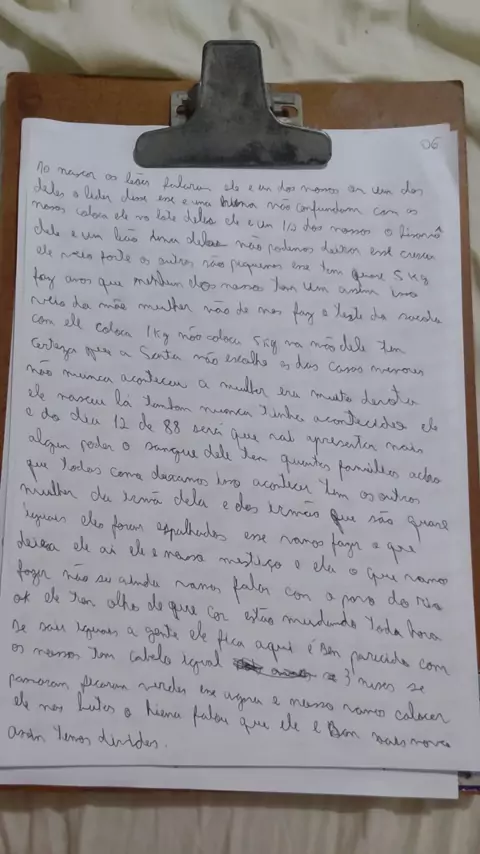 06
Ao nascer os leões falaram ele e um dos nossos ou um dos
deles o lider disse esse e uma hiena não confundam com os
nossos coloca ele no lote deles ele e um 1/2 dos nossos o
dele e um leão deles não podemos deixar esse crescer
ele veio forte os outros são pequenos esse tem quase 5 Kg
faz anos que nenhum dos nossos tem um assim isso
veio da mãe mulher não de nos faz o teste da sacola
com ele coloca 1Kg não coloca 5Kg na mão dele tem
certeza que a Santa não escolhe as das casas menores
não nunca aconteceu a mulher era muito devota
ele nasceu lá tambem nunca tinha acontecido ele
e do dia 12 de 88 será que vai apresentar mais
algum poder o sangue dele tem quantas familias acho
que todas como deixamos isso acontecer tem os outros
mulher da irmã dela e dos irmãos que são quase
iguais eles foram espalhados esse vamos fazer o que
deixa ele ai ele e nosso mestiço e ela o que vamos
fazer não sei ainda vamos falar com o povo do Rio
ok ele tem olho de que cor estão mudando toda hora
se sair iguais a gente ele fica aqui é bem parecido com
os nossos tem cabelo igual 3 meses se
passaram ficaram verdes esse agora e nosso vamos colocar
ele nas lutas o hiena falou que ele e Bom
assim temos duvidas.